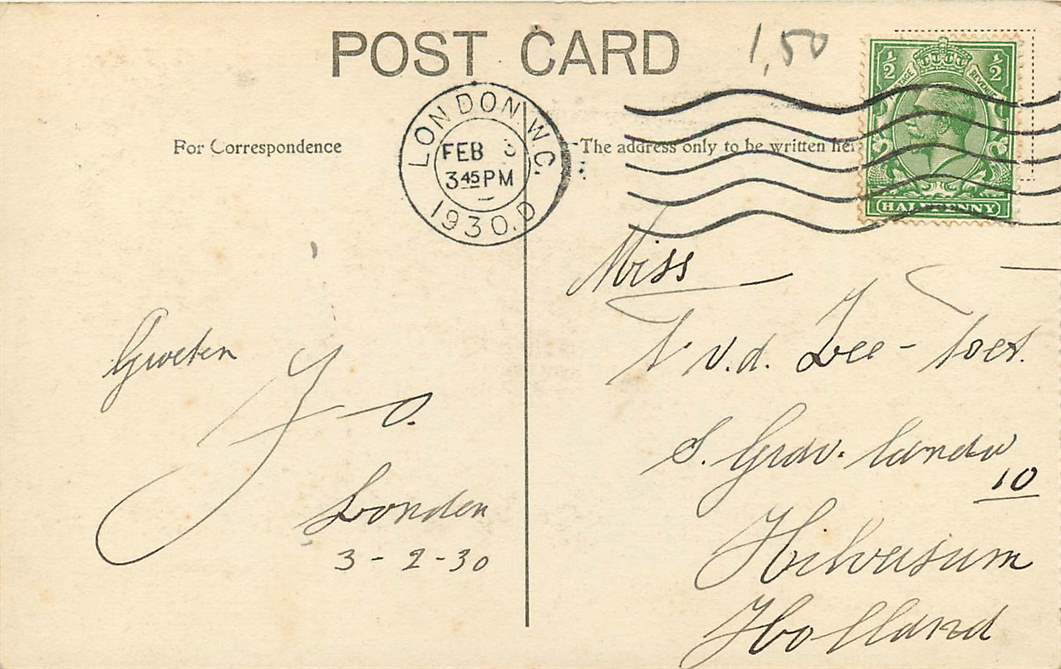 POST CARD
1,50
½ ½
HALFPENNY
LONDON W.C.
FEB 3
3 45 PM
1930.D
For Correspondence
The address only to be written here
Groeten
Jo.
Londen
3-2-30
Miss
v.d. Zee-
S. Grav. landw
10
Hilversum
Holland